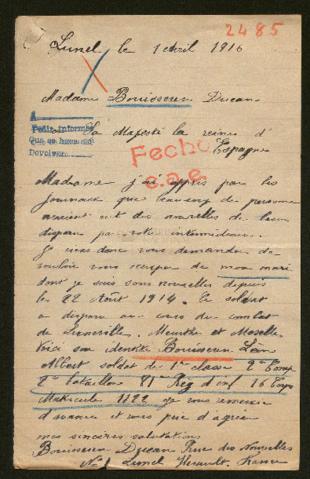 2485
Lunel le 1 Avril 1916
Madame Bouisseren Ducan
Sa Majesté la reine d'
Espagne
Pedir informes
que se hacen del
Devolver
Fecho
Madame j'ai appris par les
journaux que beaucoup de personne
avaient eut des nouvelles de leurs
disparu par votre intermédiaire.
Je viens donc vous demander de
vouloir vous occuper de mon mari
dont je suis sans nouvelles depuis
les 22 Aout 1914. Ce soldat
a disparu au cours du combat
de Luneville. Meurthe et Moselle
Voici son identité Bouisseren Léon
Albert soldat de 1re classe 2e Comp
2e bataillon 81e Reg d'inf 16 Corps
Matricule 1122 Je vous remercie
d'avance et vous prie d'agréer
mes sincères salutations
Bouisseren Ducan Rue des
No 1 Lunel Herault. France